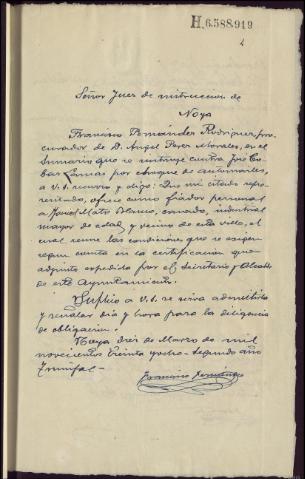 H.6.588.919
Señor Juez de instruccion de
Noya
Francisco Fernández Rodriguez, pro-
curador de D. Angel Perez Morales, en el
sumario que se instruye contra José To-
bar Lamas por choque de automoviles,
a V.S. recurro y digo: Que mi citado repre-
sentado, ofrece como fiador personal
a Manuel Mato casado, industrial
mayor de edad y vecino de esta villa, el
cual reune las condiciones que se exigen
segun consta en la certificacion que
adjunto expedida por el secretario y Alcalde
de este Ayuntamiento.
Suplico a V.S. se sirva admitirlo
y señalar dia y hora para la diligencia
de obligacion.
Noya diez de Marzo de mil
novecientos treinta y ocho = Segundo año
Triunfal =
Francisco Fernández